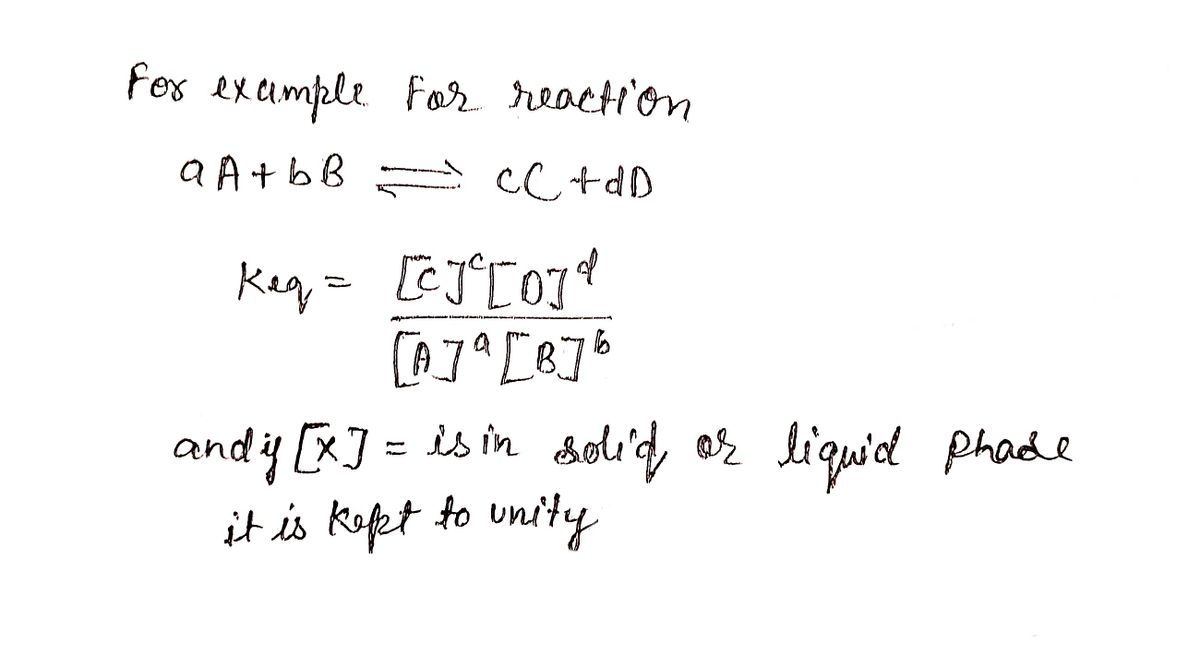 For example For reaction
aA + bB ⇌ cC + dD
Keq = [C]^c [D]^d
[A]^a [B]^b
and if [X] = is in solid or liquid phase
it is kept to unity